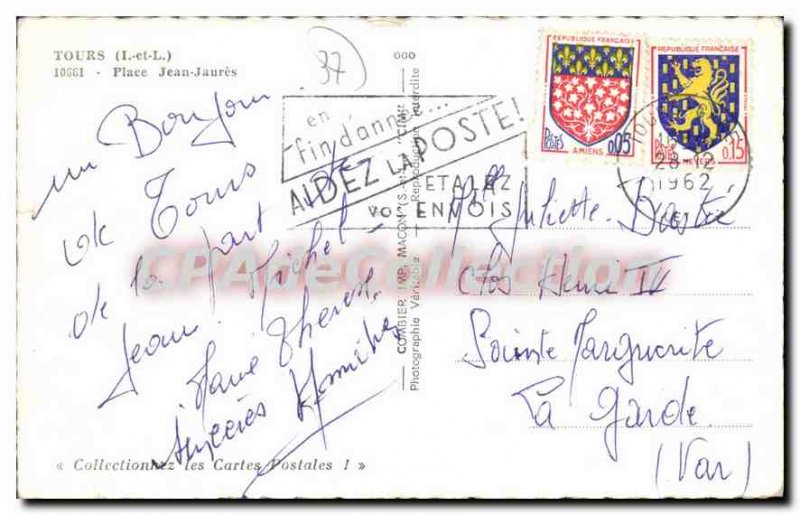 TOURS (I.-et-L.)
10861 - Place Jean-Jaurès
37
un Bonjour
de Tours
de la part de
Jean Michel
Marie Thérèse
« Collectionnez les Cartes Postales ! »
000
COMBIER IMP. MACON (S.-et-L.) "CIM"
Photographie Véritable - Reproduction interdite
en
fin d'année...
AIDEZ LA POSTE!
ETALEZ
VOS ENVOIS
REPUBLIQUE FRANÇAISE
POSTES
0,05
AMIENS
REPUBLIQUE FRANÇAISE
POSTES
0,15
NEVERS
28-12
1962
Mlle Juliette
Clos Henri IV
Sainte Marguerite
La Garde
(Var)
CPAdeCollection